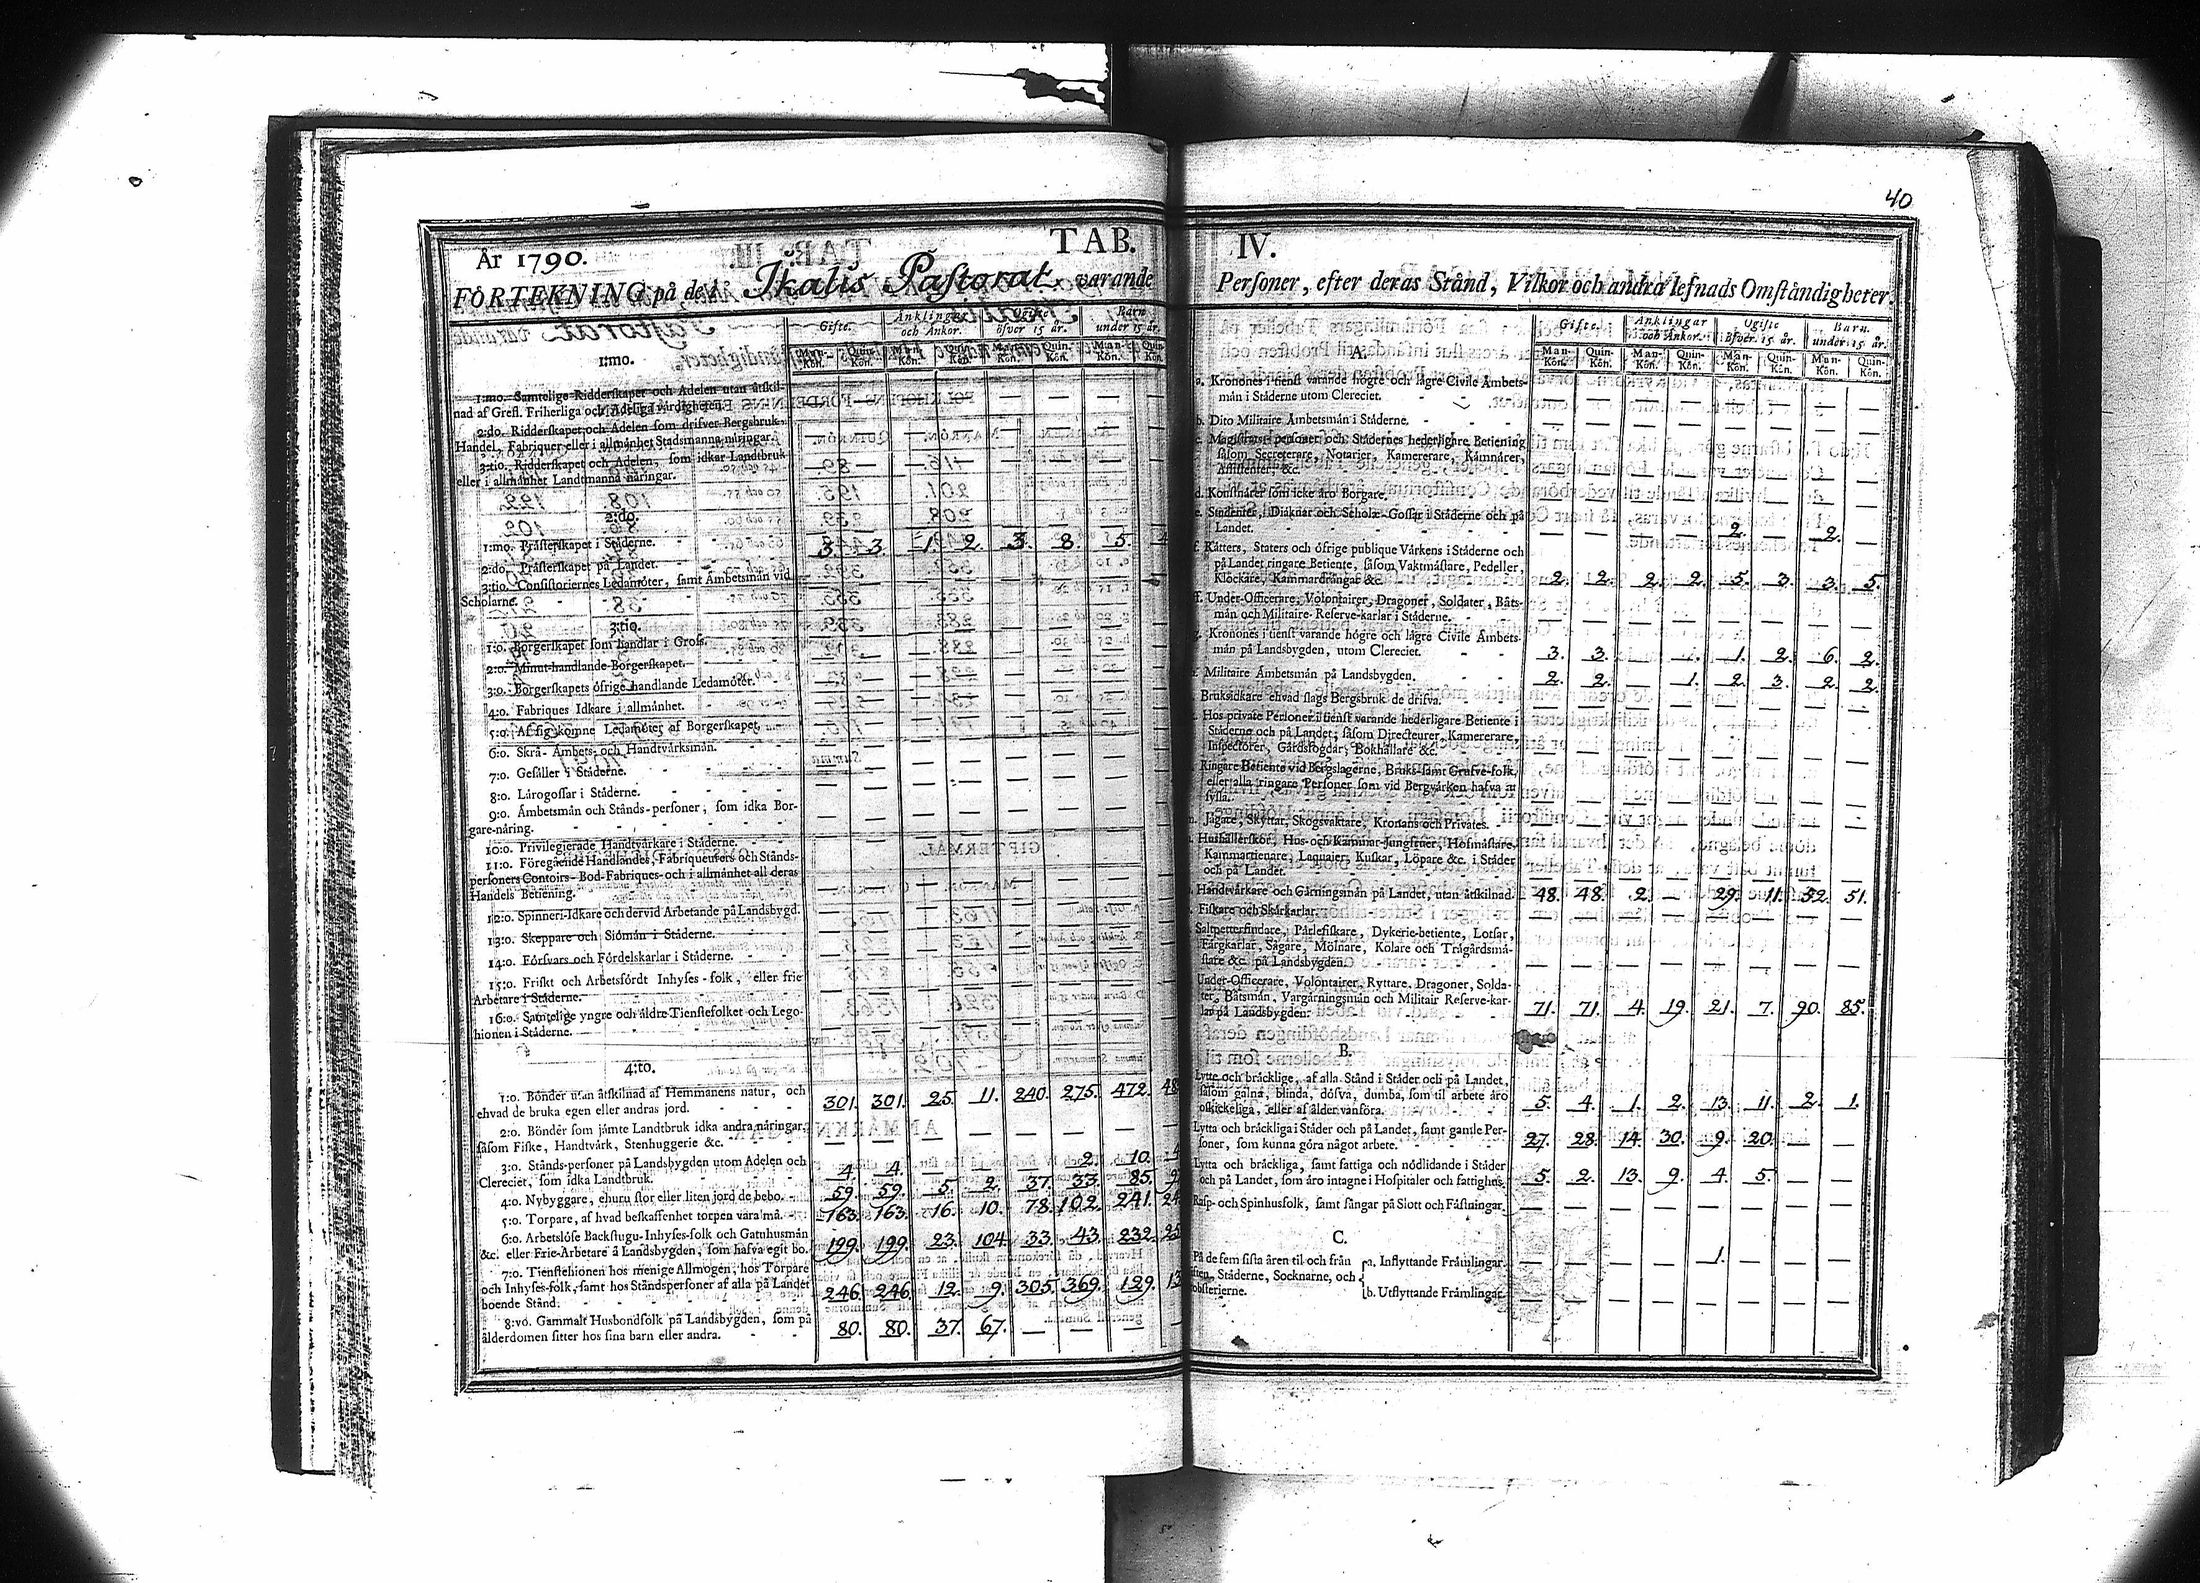 40
År 1790.
TAB.
FÖRTEKNING på de i Ikalis Pastorat varande
Gifte. Änklingar och Änkor. Ogifte öfver 15 år. Barn under 15 år.
Man-Kön. Quin-Kön. Man-Kön. Quin-Kön. Man-Kön. Quin-Kön. Man-Kön. Quin-Kön.
1:mo.
1:mo. Samtelige Ridderskapet och Adelen utan åtskil-
nad af Grefl. Friherliga och Adeliga värdigheter.
2:do. Ridderskapet och Adelen som drifver Bergsbruk,
Handel, Fabriquer eller i allmänhet Stadsmanna näringar.
3:tio. Ridderskapet och Adelen, som idkar Landtbruk
eller i allmänhet Landtmanna näringar.
2:do.
1:mo. Prästerskapet i Städerne.
2:do. Prästerskapet på Landet. 3. 3. 1. 2. 3. 8. 5. 4
3:tio. Consistoriernes Ledamöter, samt Ämbetsmän vid
Scholarne.
3:tio.
1:o. Borgerskapet som handlar i Gross.
2:o. Minut-handlande Borgerskapet.
3:o. Borgerskapets öfrige handlande Ledamöter.
4:o. Fabriques Idkare i allmänhet.
5:o. Af sig komne Ledamöter af Borgerskapet.
6:o. Skrå- Ämbets- och Handtvärksmän.
7:o. Gesäller i Städerne.
8:o. Lärogossar i Städerne.
9:o. Ämbetsmän och Stånds-personer, som idka Bor-
gare-näring.
10:o. Privilegierade Handtvärkare i Städerne.
11:o. Föregående Handlandes, Fabriqueurers och Stånds-
personers Contoirs- Bod- Fabriques- och i allmänhet all deras
Handels Betiening.
12:o. Spinneri-Idkare och dervid Arbetande på Landsbygd.
13:o. Skeppare och Siömän i Städerne.
14:o. Försvars och Fördelskarlar i Städerne.
15:o. Friskt och Arbetsfördt Inhyses-folk, eller frie
Arbetare i Städerne.
16:o. Samtelige yngre och äldre Tienstefolket och Lego-
hionen i Städerne.
4:to.
1:o. Bönder utan åtskilnad af Hemmanens natur, och
ehvad de bruka egen eller andras jord. 301. 301. 25. 11. 240. 275. 472. 48
2:o. Bönder som jämte Landtbruk idka andra näringar,
såsom Fiske, Handtvärk, Stenhuggerie &c.
3:o. Stånds-personer på Landsbygden utom Adelen och
Clereciet, som idka Landtbruk. 4. 4. — — — 2. 10. 4
4:o. Nybyggare, ehuru stor eller liten jord de bebo. 59. 59. 5. 2. 37. 33. 85. 9
5:o. Torpare, af hvad beskaffenhet torpen vara må. 163. 163. 16. 10. 78. 102. 241. 24
6:o. Arbetslöse Backstugu-Inhyses-folk och Gatuhusmän
&c. eller Frie-Arbetare å Landsbygden, som hafva egit bo. 199. 199. 23. 104. 33. 43. 232. 25
7:o. Tienstehionen hos menige Allmogen, hos Torpare
och Inhyses-folk, samt hos Ståndspersoner af alla på Landet
boende Stånd. 246. 246. 12. 9. 305. 369. 129. 13
8:vo. Gammalt Husbondfolk på Landsbygden, som på
ålderdomen sitter hos sina barn eller andra. 80. 80. 37. 67. — — —
IV.
Personer, efter deras Stånd, Vilkor och andra lefnads Omständigheter.
Gifte. Änklingar och Änkor. Ogifte öfver 15 år. Barn under 15 år.
Man-Kön. Quin-Kön. Man-Kön. Quin-Kön. Man-Kön. Quin-Kön. Man-Kön. Quin-Kön.
A.
a. Kronones i tienst varande högre och lägre Civile Ämbets-
män i Städerne utom Clereciet.
b. Dito Militaire Ämbetsmän i Städerne.
c. Magistrats-personer och Städernes hederligare Betiening
såsom Secreterare, Notarier, Kamererare, Kämnärer,
Assistenter, &c.
d. Konstnärer som icke äro Borgare.
e. Studenter, Diäknar och Scholæ-Gossar i Städerne och på
Landet. — — — — 2. — 2. —
f. Rätters, Staters och öfrige publique Värkens i Städerne och
på Landet ringare Betiente, såsom Vaktmästare, Pedeller,
Klockare, Kammardrängar &c. 2. 2. 2. 2. 5. 3. 3. 5.
ff. Under-Officerare, Volontairer, Dragoner, Soldater, Båts-
män och Militaire-Reserve-karlar i Städerne.
g. Kronones i tienst varande högre och lägre Civile Ämbets-
män på Landsbygden, utom Clereciet. 3. 3. — 1. 1. 2. 6. 2.
Militaire Ämbetsmän på Landsbygden. 2. 2. — 1. 2. 3. 2. 2.
Bruksidkare ehvad slags Bergsbruk de drifva.
Hos private Personer i tienst varande hederligare Betiente i
Städerne och på Landet; såsom Directeurer, Kamererare,
Inspectorer, Gårdsfogdar, Bokhållare &c.
Ringare Betiente vid Bergslagerne, Bruks- samt Grufve-folk,
eller alla ringare Personer som vid Bergvärken hafva at
sysla.
Jägare, Skyttar, Skogsvaktare, Kronans och Privates.
Hushållerskor, Hus- och Kammar-Jungfruer, Hofmästare,
Kammartienare, Laquaier, Kuskar, Löpare &c. i Städer
och på Landet.
Handtvärkare och Gärningsmän på Landet, utan åtskilnad. 48. 48. 2. — 29. 11. 52. 51.
Fiskare och Skärkarlar.
Saltpetterfiudare, Pärlefiskare, Dykerie-betiente, Lotsar,
Färgkarlar, Sågare, Mölnare, Kolare och Trägårdsmä-
stare &c. på Landsbygden.
Under-Officerare, Volontairer, Ryttare, Dragoner, Solda-
ter, Båtsmän, Vargärningsmän och Militair Reserve-kar-
lar på Landsbygden. 71. 71. 4. 19. 21. 7. 90. 85.
B.
Lytte och bräcklige, af alla Stånd i Städer och på Landet,
såsom galna, blinda, döfva, dumba, som til arbete äro
oskickeliga, eller af ålder vanföra. 5. 4. 1. 2. 13. 11. 2. 1.
Lytta och bräckliga i Städer och på Landet, samt gamle Per-
soner, som kunna göra något arbete. 27. 28. 14. 30. 9. 20. — —
Lytta och bräckliga, samt fattiga och nödlidande i Städer
och på Landet, som äro intagne i Hospitaler och fattighus. 5. 2. 13. 9. 4. 5. — —
Rasp- och Spinhusfolk, samt fångar på Slott och Fästningar.
C.
På de fem sista åren til och från { a. Inflyttande Främlingar. — — — — 1. — — —
Städerne, Socknarne, och
b. Utflyttande Främlingar.